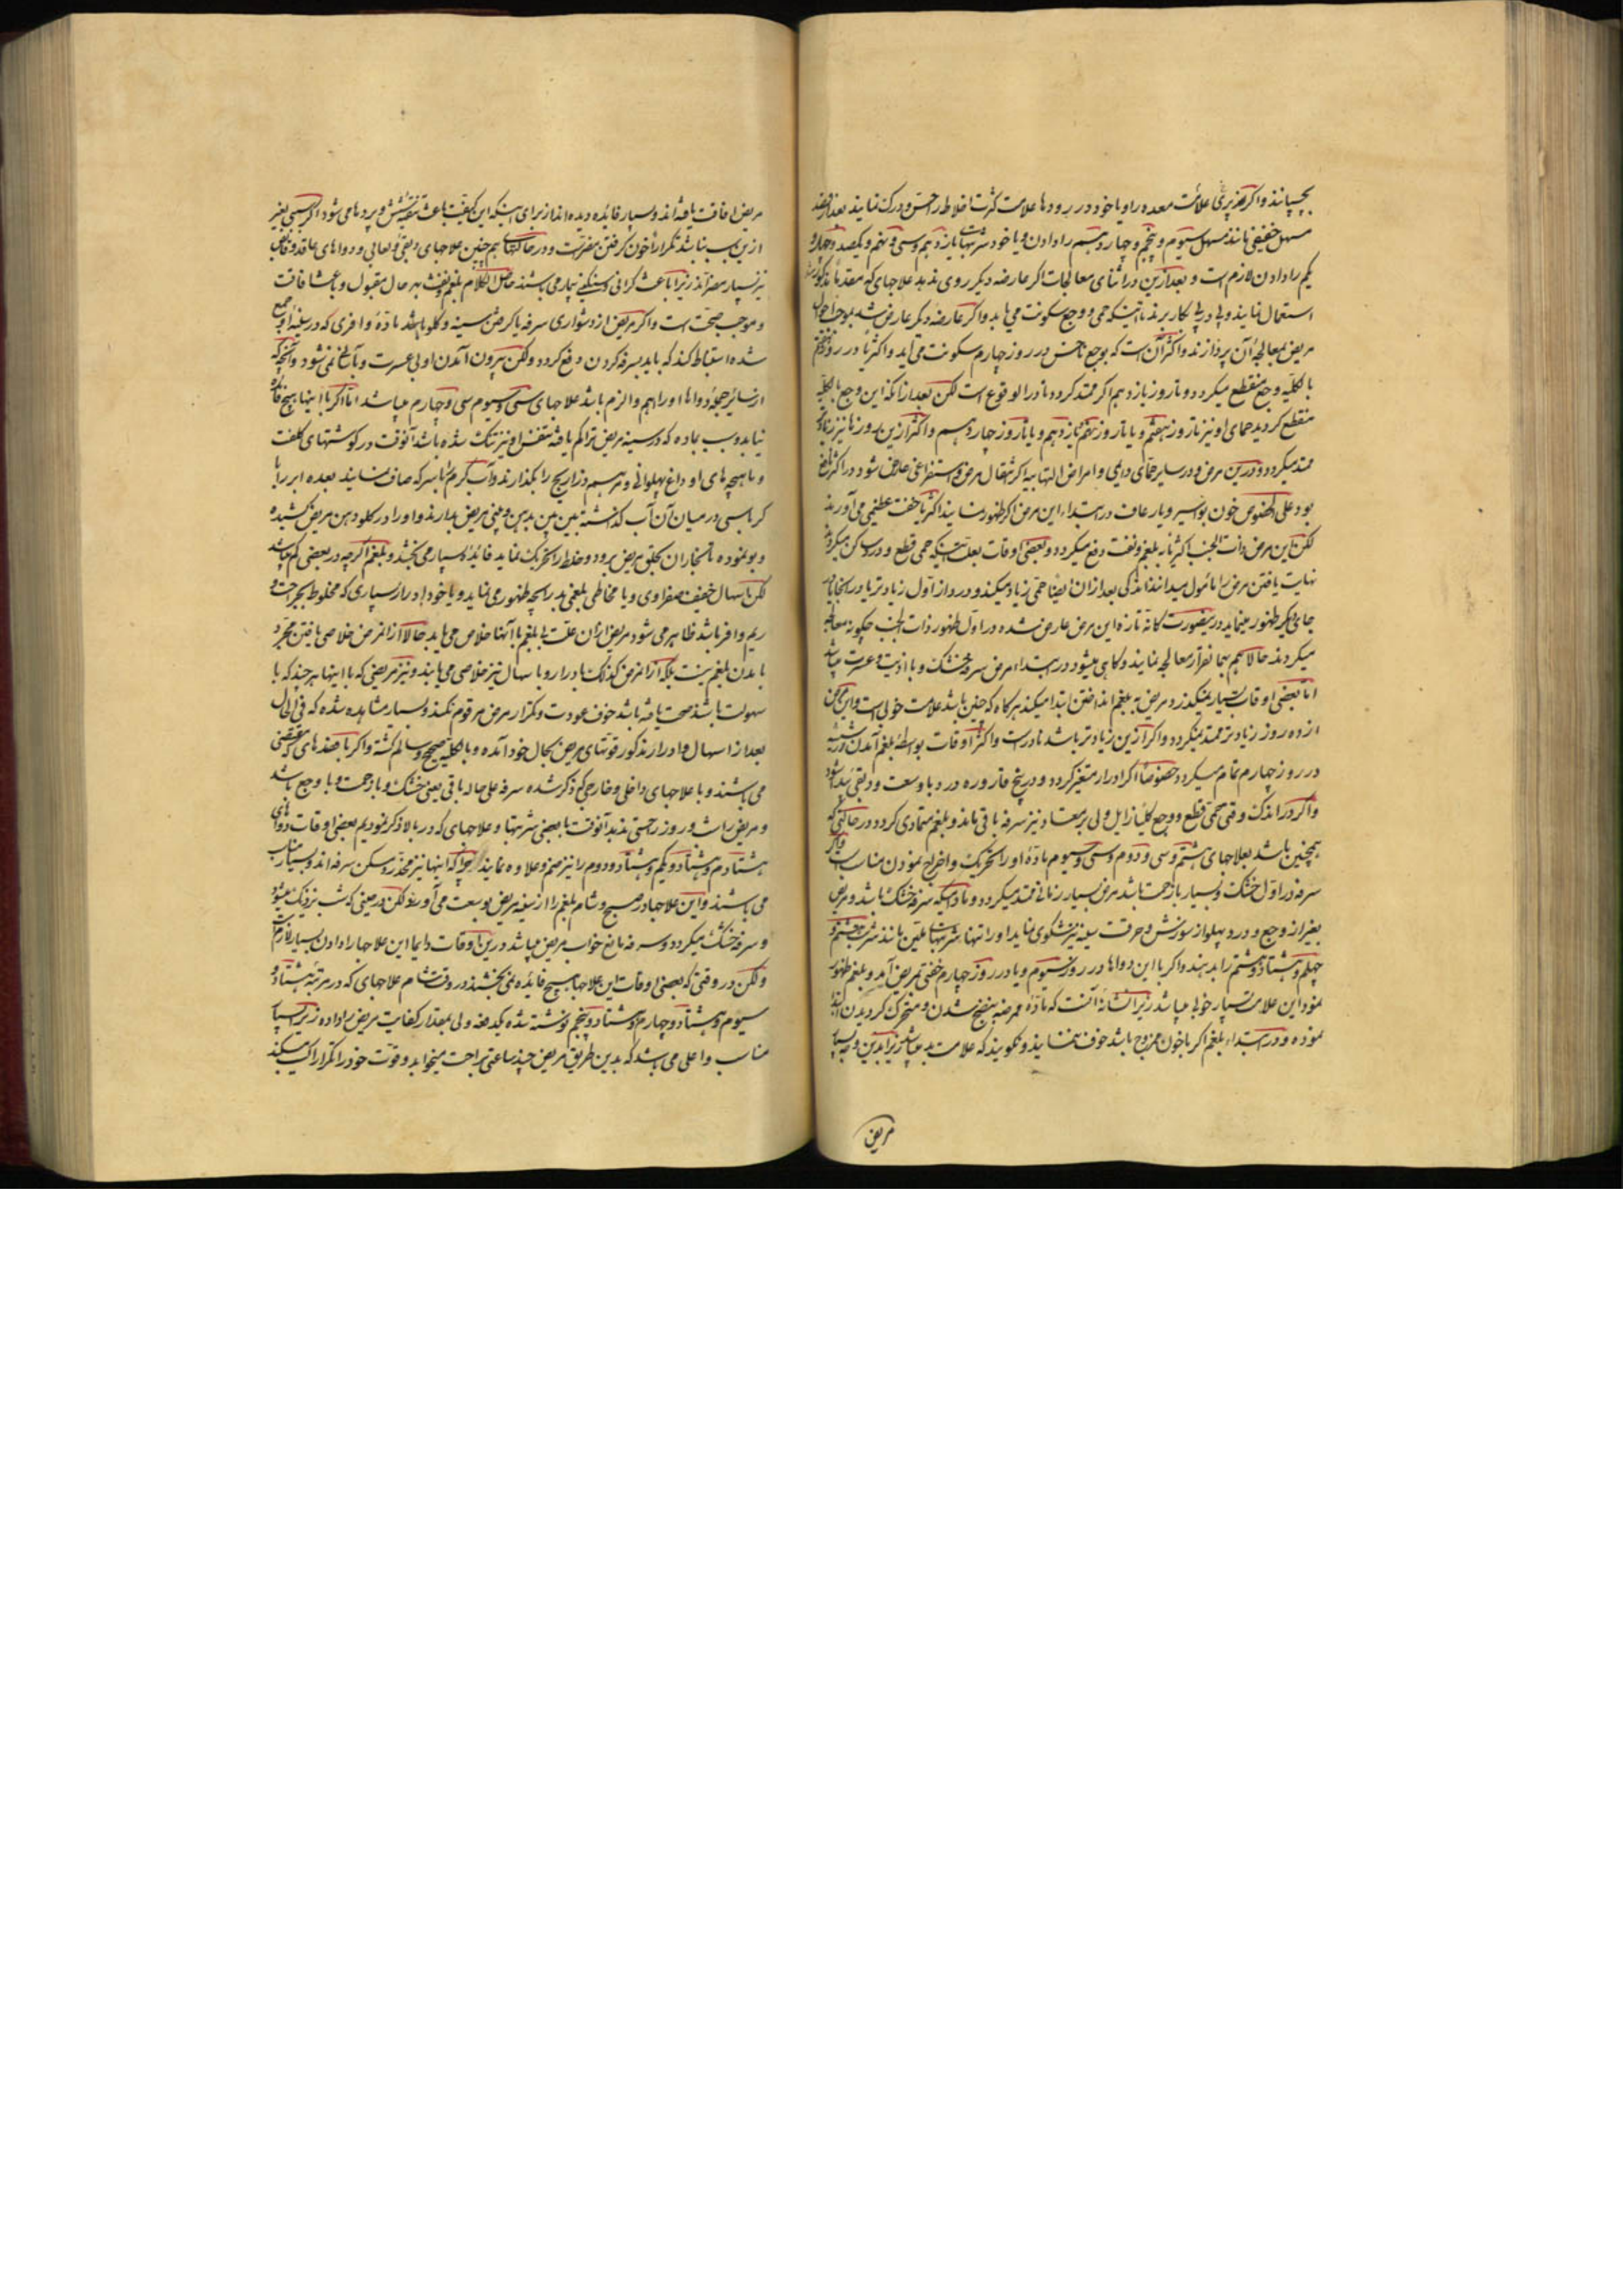 بچسپانند واگر هنوز پری علامت معده را و یا خود در رودها علامت کثرت اخلاط را حس و درک نمایند بعد از فصد
مسهل خفیفی مانند مسهل سیوم و پنجم و چهاردهم را دادن و یا خود شربتهای یازدهم و سی و نهم و یکصد و چهار و
یکم را دادن لازم است و بعد ازین در اثنای معالجات اگر عارضه دیگر روی ندهد علاجهای که مقدما مذکور شد
استعمال نمایند و پی در پی بکار برند تا آنکه حمی و وجع سکونت می یابد واگر عارضه دیگر عارض شد بموجب احوال
مریض بمعالجهٔ آن پردازند واکثر آن است که بوجع ناخس در روز چهارم سکونت می آید واکثریا در روز هفتم
بالکلیه وجع منقطع میگردد و تا روز یازدهم اگر ممتد گردد نادر الوقوع است لکن بعد از آنکه این وجع بالکلیه
منقطع گردید حمای او نیز تا روز هفتم و یا تا روز نهم یازدهم و یا تا روز چهاردهم واکثر ازین روزها نیز زیاده
ممتد میگردد و درین مرض و در سایر حمای دایمی و امراض التهابیه اگر انتقال مرض و استفراغی عارض شود در اکثر نافع
بود علی الخصوص خون بواسیر و یا رعاف در ابتداء این مرض اگر ظهور نمایند اکثریا خفت عظیمی می آورند
لکن این مرض ذات الجنب اکثریا به بلغم و نفث دفع میگردد و بعضی اوقات بعلت اینکه حمی قطع و درد ساکن میگردد
نهایت یافتن مرض را مأمول میدانند اندکی بعد از آن ایضا حمی زیاد میکند و درد از اول زیادتر یا در همانجا یا در
جای دیگر ظهور مینماید درینصورت کانه تازه این مرض عارض شده در اول ظهور ذات الجنب چگونه معالجه
میکردند حالا هم بهمانقرار معالجه نمایند و گاهی میشود در ابتداء مرض سرفه خشک و با اذیت و عسرت میباشد
اما بعضی اوقات بسیار نمیگذرد مریض به بلغم انداختن ابتدا میکند هرگاه که چنین باشد علامت خوبی است و این مرض
از ده روز زیادتر ممتد نمیگردد واگر ازین زیادتر باشد نادر است واکثر اوقات بواسطهٔ بلغم آمدن
در روز چهارم تمام میگردد خصوصا اگر ادرار متغیر گردد و در بیخ قاروره درد باوسعت و دقیق پیدا شود
واگر در اندک وقتی حمی قطع و وجع کلیا زایل ولی بر معتاد نیز سرفه باقی ماند و بلغم متمادی گردد در حالتی که
همچنین باشد بعلاجهای هشتم و سی و دوم و سی و سیوم ماده او را تحریک و اخراج نمودن مناسب است واگر
سرفه در اول خشک و بسیار بازحمت باشد مرض بسیار زمانی ممتد میگردد و مادامیکه سرفه خشک باشد و مریض
بغیر از وجع و درد پهلو از سوزش و حرقت سینه نیز شکوی نماید او را تنها شربتهای ملین مانند شربت هشتم و
چهلم و هشتاد و هشتم را بدهند واگر با این دواها در روز سیوم و یا در روز چهارم خفتی بمریض آید و بلغم ظهور
نمود این علامت بسیار خوب میباشد زیرا نشانهٔ آنست که ماده ممرضه بنضج شدن و متحرک گردیدن ابتدا
نموده و در ابتداء بلغم اگر باخون ممزوج باشد خوف ننمایند و نگویند که علامت بد میباشد زیرا بدین وجه بسیار
مریض
مریض افاقت یافته اند و بسیار فائده دیده اند از برای اینکه این کیفیت باعث تنقیهٔ شش و پرده ها می شود اگر سببی بغیر
ازین سبب نباشد تکرار اخون گرفتن مضرتست و در حالتهای هم چنین علاجهای دبقی و لعابی و دواهای عاقد و قابض
نیز بسیار مضر اند زیرا باعث گرانی و سنگینی بیمار می باشند حاصل الکلام بلغم و نفث بهر حال مقبول و باعث افاقت
و موجب صحت است واگر مریض از دشواری سرفه یا گرفتن سینه و گلو باشد ماده وافری که در سینه او جمع
شده استنباط کند که باید بسرفه کردن دفع گردد ولکن بیرون آمدن او بی عسرت و با سانی نمی شود و آنچه که
از سائر جمله دواها او را اهم والزم باشد علاجهای سی و سیوم سی و چهارم میباشد اما اگر با اینها هیچ فائده
نیابد و سبب ماده که در سینه مریض تراکم یافته تنفس او نیز تنگ شده باشد آنوقت در گوشتهای کلفت
و ماهیچه های او داغ پهلوانی و مرهم ذراریح را بگذارند و آب گرم را با سرکه صاف نمایند بعده ابر را با
کرباسی در میان آن آب گذاشته بین بین بدهن و بینی مریض بدارند و او را در گلو و دهن مریض کشیده
و بو نموده تا بخار آن بحلق مریض برود و خلط را تحریک نماید فائده بسیار می بخشد و بلغم اگرچه در بعضی کم باشد
لکن با سهال خفیف صفراوی و یا مخاطی بلغمی بد رایحه ظهور می نماید و یا خود ادرار بسیاری که مخلوط بچرک و
ریم وافر باشد ظاهر می شود مریض از آن علت بی بلغم با آنها خلاص می یابد حالا از آنمرض خلاصی یافتن مجرد
بامدن بلغم نیست بلکه از آنمرض کذلک بادرار و با سهال نیز خلاصی می یابند و نیز مریضی که با اینها هر چند که با
سهولت باشد صحت یافته باشد خوف عودت و تکرار مرض مرقوم نکنند و بسیار مشاهده شده که فی الحال
بعد از اسهال و ادرار مذکور قوتهای مریض بحال خود آمده و بالکلیه صحیح و سالم گشته واگر با فصدهای که مقتضی
می باشند و با علاجهای داخلی و خارجی که ذکر شده سرفه علی حاله باقی یعنی خشک و بازحمت و با وجع باشد
و مریض را شب و روز راحتی ندهد آنوقت با بعضی شربتها و علاجهای که در بالا ذکر نمودیم بعضی اوقات دوای
هشتادم و هشتاد و یکم و هشتاد و دوم را نیز ضم و علاوه نمایند چونکه اینها نیز مخدر و مسکن سرفه اند و بسیار مناسب
می باشند و این علاجها در صبح و شام بلغم را از سینه مریض بوسعت می آورند ولکن در حینی که شب نزدیک میشود
و سرفه خشک میگردد و سرفه مانع خواب مریض میباشد درین اوقات دایما این علاجها را دادن بسیار لازم است
ولکن در وقتی که بعضی اوقات این علاجها هیچ فایده نمی بخشند در وقت شام علاجهای که در مرتبهٔ هشتاد و
سیوم و هشتاد و چهارم و هشتاد و پنجم نوشته شده یکدفعه ولی بمقدار کفایت مریض را داده زیرا بسیار
مناسب واعلی می باشد که بدین طریق مریض چند ساعتی براحت میخوابد و قوت خود را تکرار اکتساب میکند